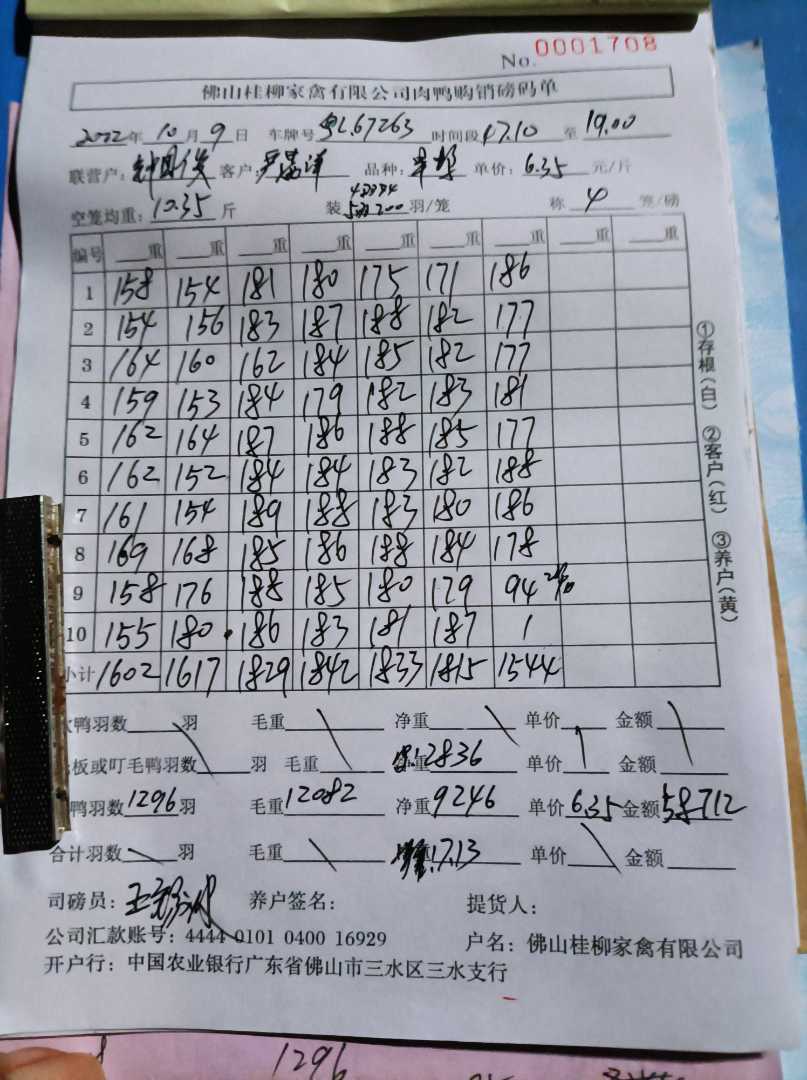 No. 0001708
佛山桂柳家禽有限公司肉鸭购销磅码单
2022年 10 月 9 日 车牌号 粤L.67263 时间段 17.10 至 19.00
联营户: 客户: 品种: 单价: 6.35 元/斤
空笼均重: 10.35 斤 装 羽/笼 称 4 笼/磅
编号 重 重 重 重 重 重 重 重 重
1 158 154 181 180 175 171 186
2 154 156 183 187 188 182 177
3 164 160 162 184 185 182 177
4 159 153 184 179 182 183 181
5 162 164 187 186 188 185 177
6 162 152 184 184 183 182 188
7 161 154 189 188 183 180 186
8 169 168 185 186 188 184 178
9 158 176 188 185 180 179 94
10 155 180 186 183 181 187 1
小计 1602 1617 1829 1842 1833 1815 1544
①存根(白) ②客户(红) ③养户(黄)
鸭羽数 羽 毛重 净重 单价 金额
板或叮毛鸭羽数 羽 毛重 2836 单价 金额
鸭羽数 1296 羽 毛重 12082 净重 9246 单价 6.35 金额 58712
合计羽数 羽 毛重 7.13 单价 金额
司磅员: 养户签名: 提货人:
公司汇款账号: 4444 0101 0400 16929 户名: 佛山桂柳家禽有限公司
开户行: 中国农业银行广东省佛山市三水区三水支行
1296